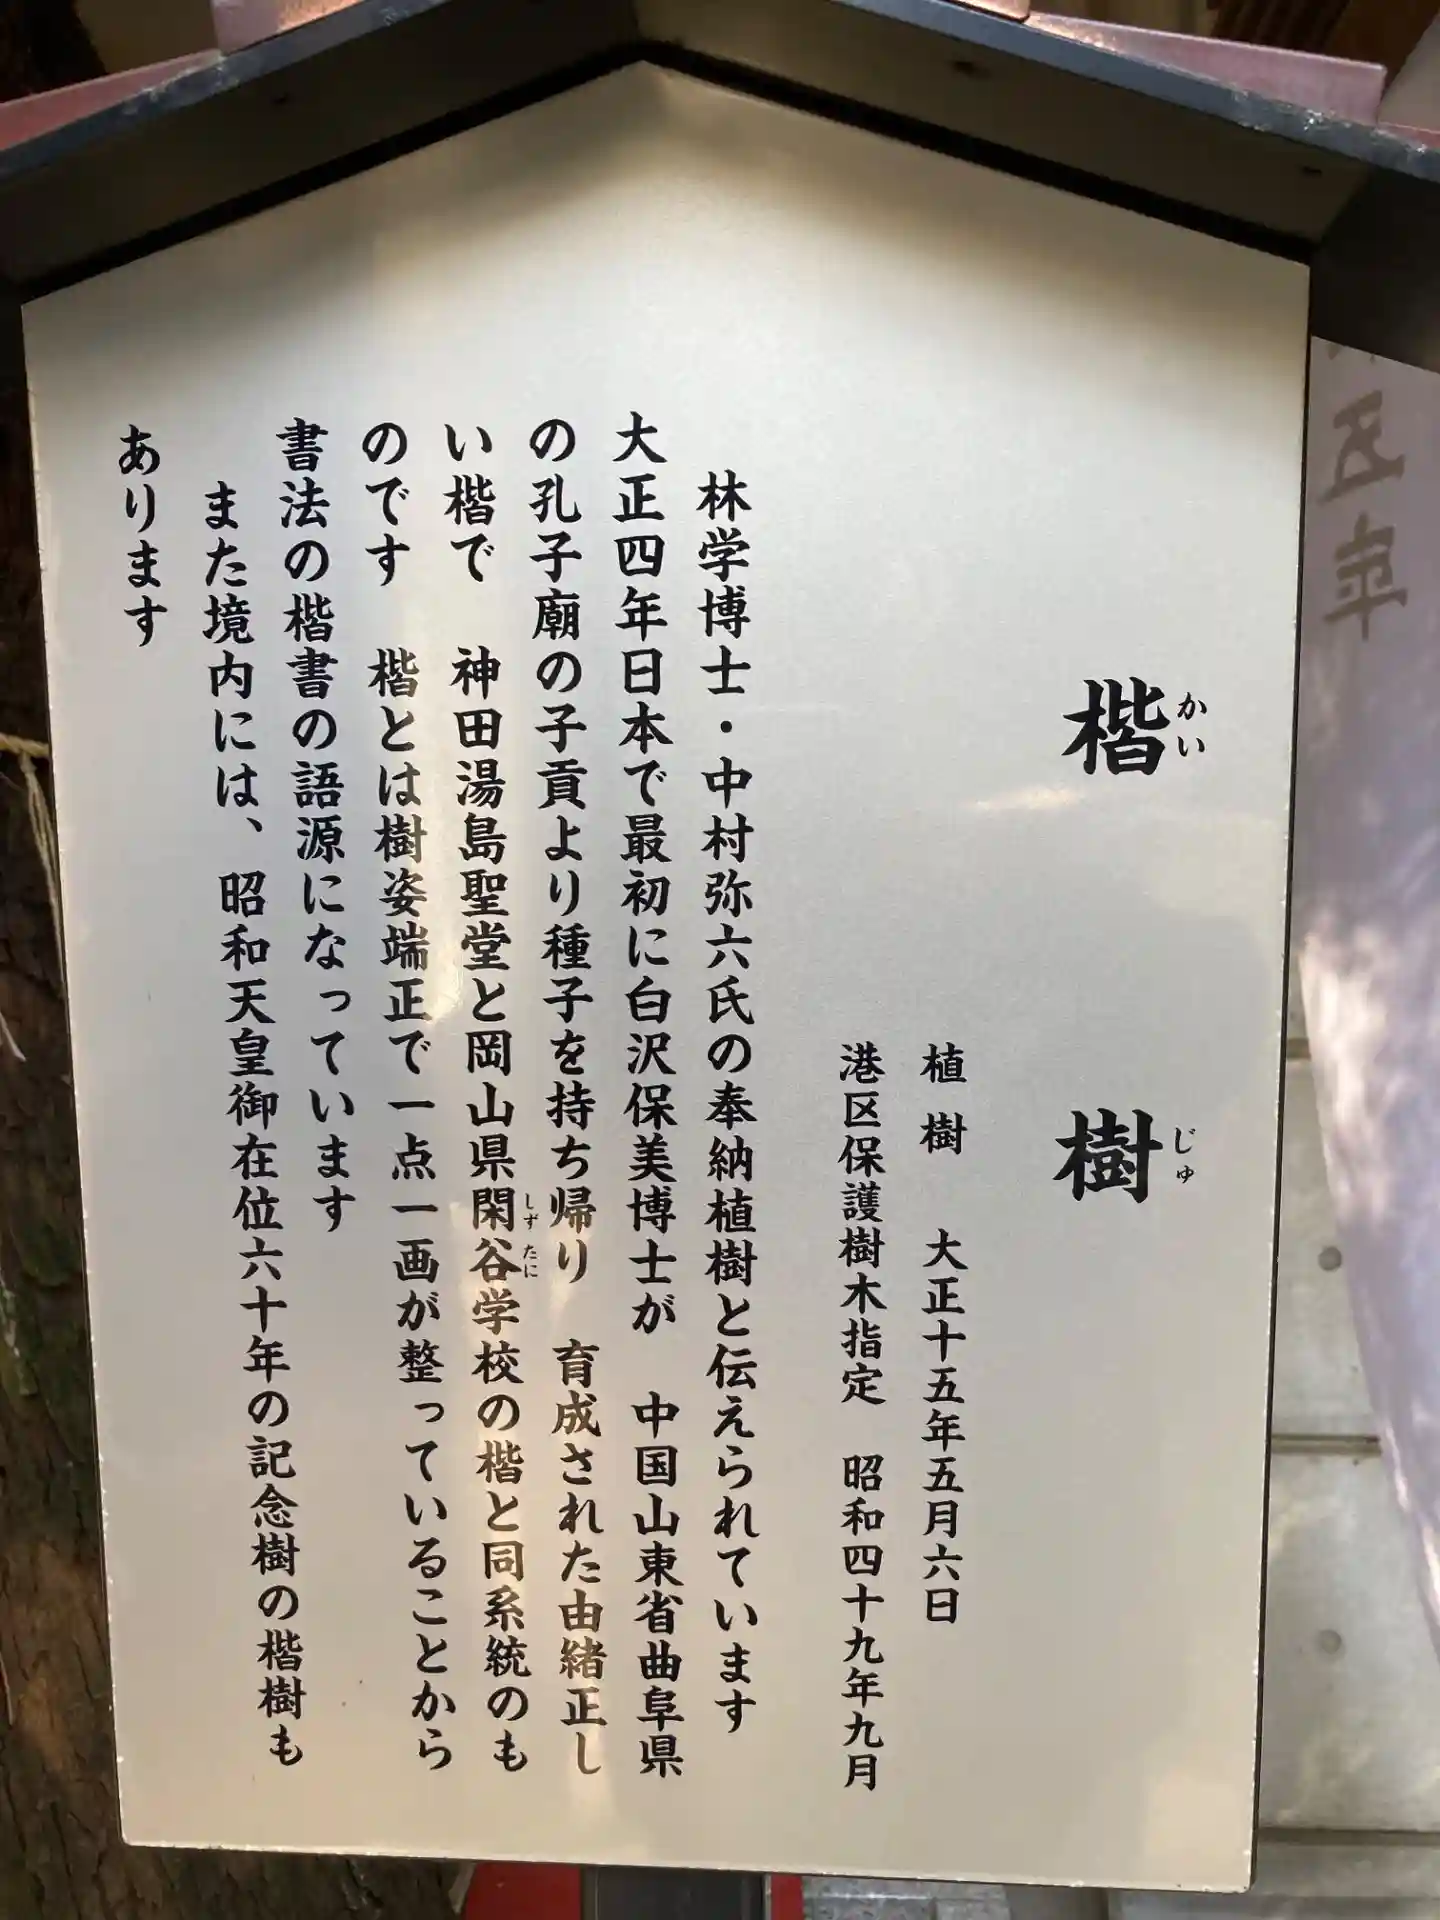 楷樹
かい じゅ
植樹 大正十五年五月六日
港区保護樹木指定 昭和四十九年九月
林学博士・中村弥六氏の奉納植樹と伝えられています
大正四年日本で最初に白沢保美博士が 中国山東省曲阜県
の孔子廟の子貢より種子を持ち帰り 育成された由緒正し
い楷で 神田湯島聖堂と岡山県閑谷学校の楷と同系統のも
しず たに
のです 楷とは樹姿端正で一点一画が整っていることから
書法の楷書の語源になっています
また境内には、昭和天皇御在位六十年の記念樹の楷樹も
あります
五年